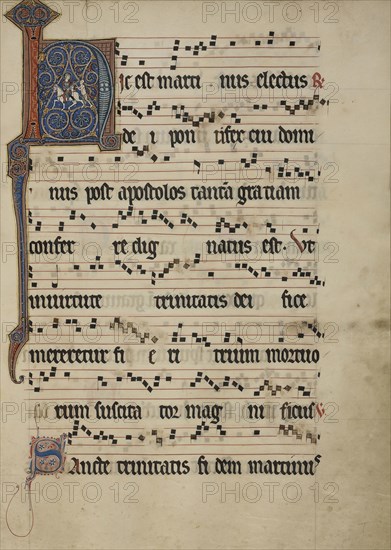 Hic est marti nus electus R
de i pontifex cui domi
nus post apostolos tantā gratiam
confer re dig natus est. Ut
in virtute trinitatis dei fice
mereretur fi e ri trium mortuo
rum suscita tor mag ni ficus V
Sancte trinitatis fi dem martinus
PHOTO 12